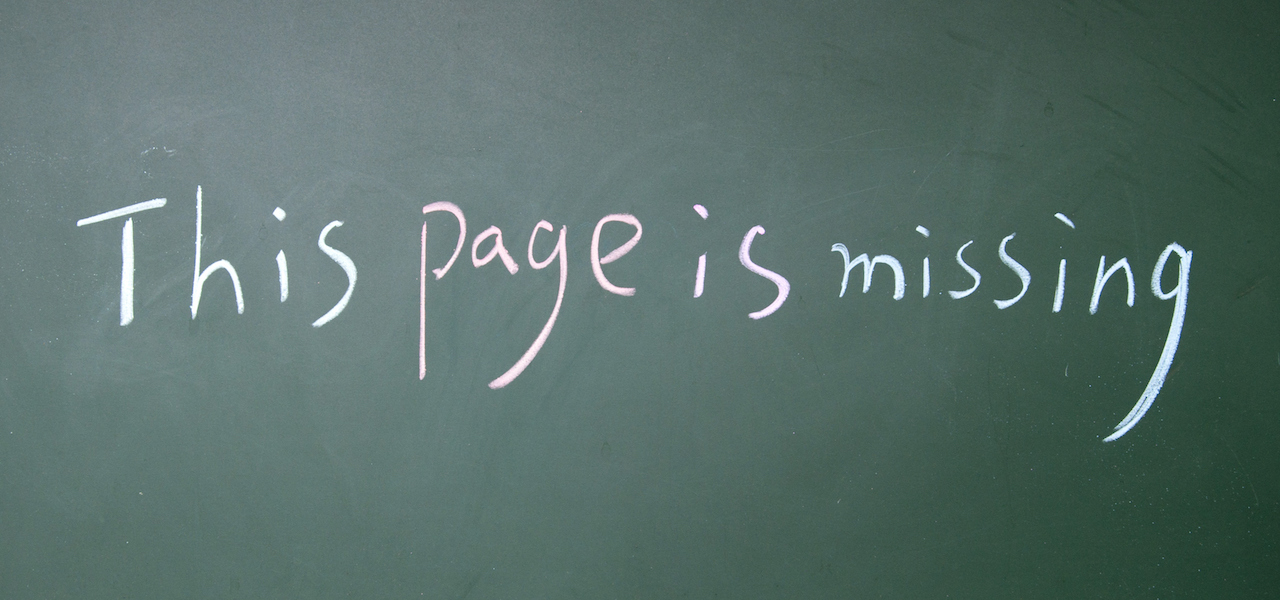 This page is missing